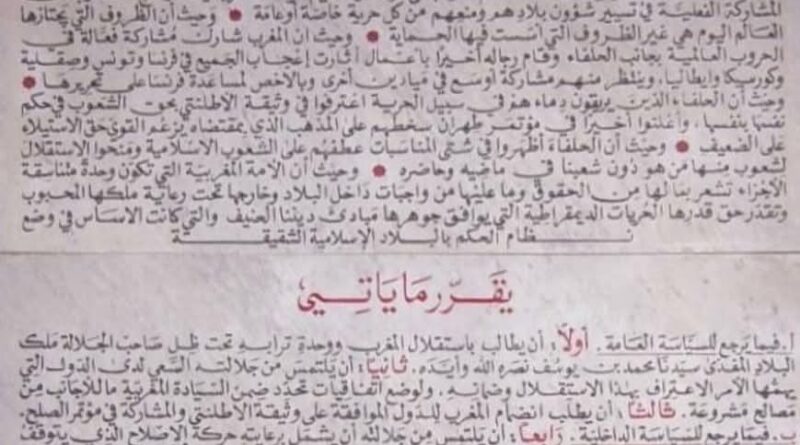 المشاركة الفعلية في تسيير شؤون بلادهم ومنعهم من كل حرية خاصة أو عامة • وحيث أن الظروف التي يجتازها
العالم اليوم هي غير الظروف التي أسست فيها الحماية • وحيث أن المغرب شارك مشاركة فعالة في
الحروب العالمية بجانب الحلفاء وقام رجاله أخيراً بأعمال أثارت إعجاب الجميع في فرنسا وتونس وصقلية
وكورسيكا وإيطاليا، وينتظر منهم مشاركة أوسع في ميادين أخرى وبالأخص لمساعدة فرنسا على تحريرها •
وحيث أن الحلفاء الذين يريقون دماءهم في سبيل الحرية اعترفوا في وثيقة الأطلنتي بحق الشعوب في حكم
نفسها بنفسها، وأعلنوا أخيراً في مؤتمر طهران سخطهم على المذهب الذي بمقتضاه يزعم القوي حق الاستيلاء
على الضعيف • وحيث أن الحلفاء أظهروا في شتى المناسبات عطفهم على الشعوب الاسلامية ومنحوا الاستقلال
لشعوب منها من هو دون شعبنا في ماضيه وحاضره • وحيث أن الأمة المغربية التي تكون وحدة متناسقة
الأجزاء تشعر بما لها من الحقوق وما عليها من واجبات داخل البلاد وخارجها تحت رعاية ملكها المحبوب
وتقدر حق قدرها الحريات الديمقراطية التي يوافق جوهرها مبادئ ديننا الحنيف والتي كانت الأساس في وضع
نظام الحكم بالبلاد الإسلامية الشقيقة
يقرر ما يأتي
أ. فيما يرجع للسياسة العامة. أولاً: أن يطالب باستقلال المغرب ووحدة ترابه تحت ظل صاحب الجلالة ملك
البلاد المفدى سيدنا محمد بن يوسف نصره الله وأيده. ثانياً: أن يلتمس من جلالته السعي لدى الدول التي
يهمها الأمر الاعتراف بهذا الاستقلال وضمانه، ولوضع اتفاقيات تحدد ضمن السيادة المغربية ما للأجانب من
مصالح مشروعة. ثالثاً: أن يطلب انضمام المغرب للدول الموافقة على وثيقة الأطلنتي والمشاركة في مؤتمر الصلح.
ب. فيما يرجع للسياسة الداخلية. رابعاً: أن يلتمس من جلالته أن يشمل برعايته حركة الإصلاح الذي يتوقف